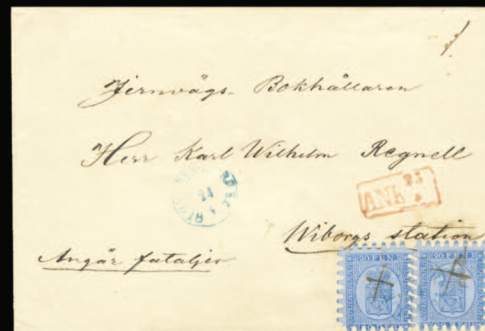 Jernvägs- Bokhållaren
Herr Karl Wilhelm Regnell
24
ANK 25
Wiborgs station
Angår fataljer
20 PEN. 20 PEN.